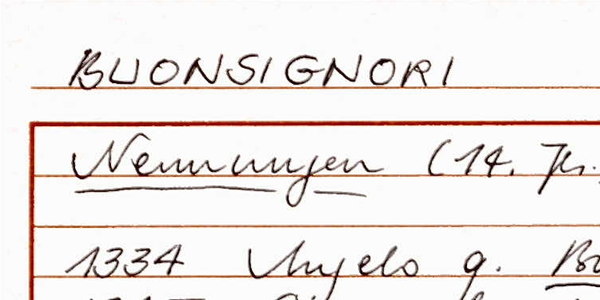 BUONSIGNORI
Nennungen (14. Jh.
1334 Angelo q.